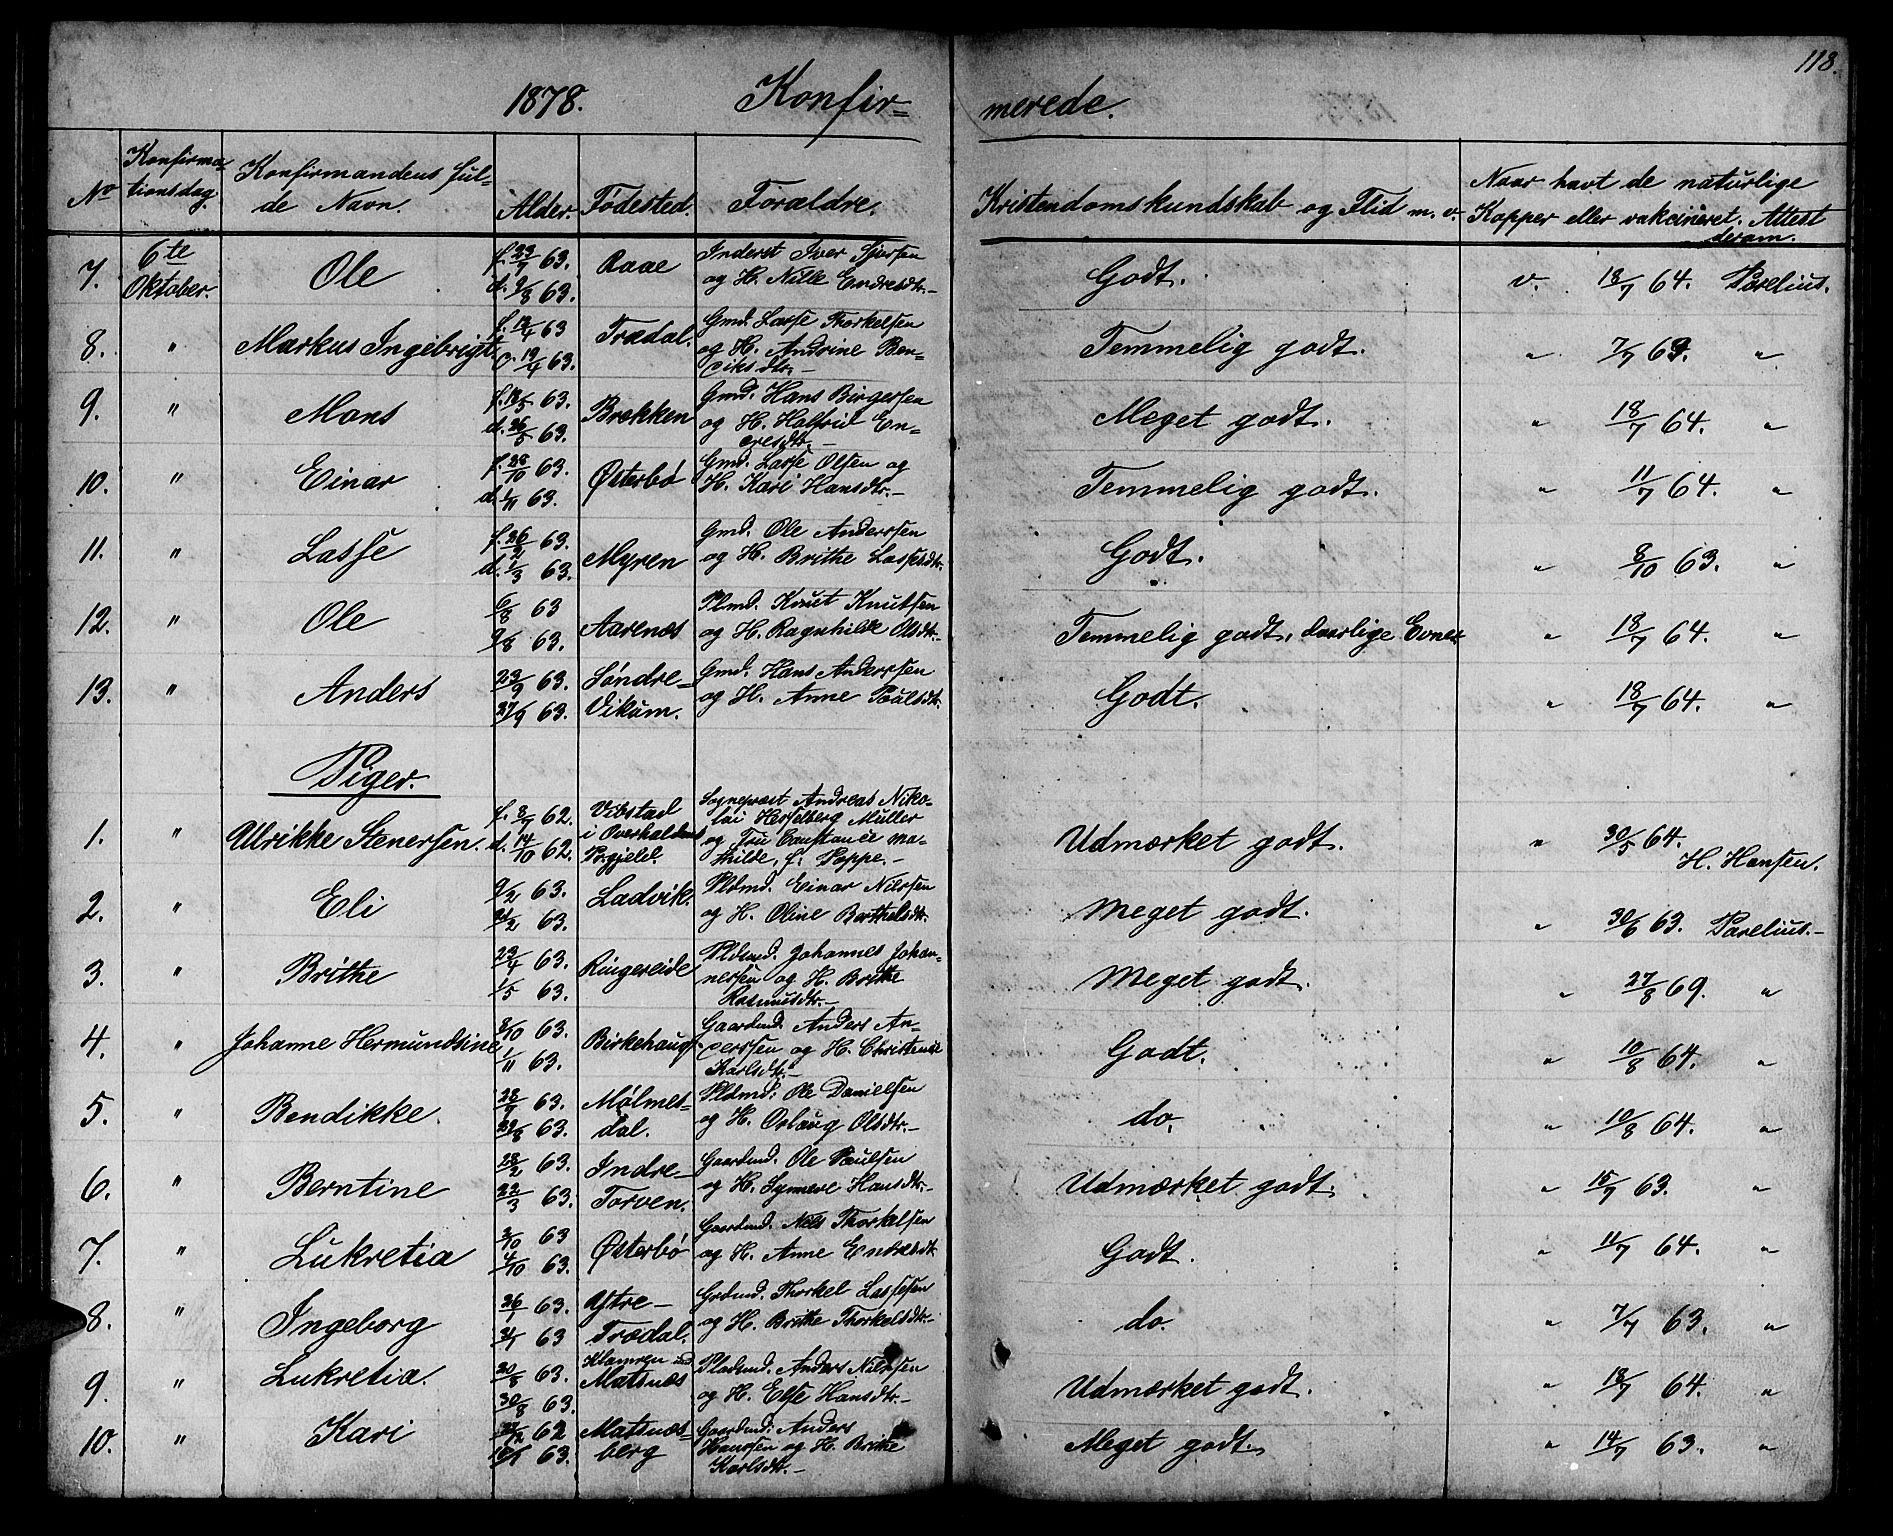 118.
1878. Konfir= merede.
No Konfirma=tionsdag. Konfirmandens ful=de Navn. Alder. Fødested. Forældre. Kristendomskundskab og Flid m. v. Naar havt de naturlige Kopper eller vakcineret. Attest derom.
7. 6te Oktober. Ole f. 23/7 63. d. 9/8 63. Raae Inderst Iver Sjursen og H. Nille Endresdtr.- Godt. v. 18/7 64. Parelius.
8. " Markus Ingebrigt 63 19/4 63. Trædal. Gmd. Lasse Thorkelsen og H. Andrine Ben=viksdtr.- Temmelig godt. " 7/7 69. "
9. " Mons 63. d. 26/5 63. Brekken Gmd. Hans Birgersen og H. Halfrid En=dresdtr.- Meget godt. " 18/7 64. "
10. " Einar f. 28/10 63. d. 1/11 63. Østerbø Gmd. Lasse Olsen og H. Kari Hansdtr.- Temmelig godt. " 11/7 64. "
11. " Lasse f. 26/2 63. d. 1/3 63. Myren Gmd. Ole Anderssen og H. Brithe Lassesdtr. Godt. " 8/10 63. "
12. " Ole 6/8 63 9/8 63. Aarenæs Plmd. Knut Knutsen og H. Ragnhilde Olsdtr.- Temmelig godt, daarlige Evner " 18/7 64. "
13. " Anders 23/9 63. 27/9 63. Søndre-Vikum. Gmd. Hans Anderssen og H. Anne Paulsdtr. Godt. " 18/7 64. "
Piger.
1. " Ulrikke Stenersen. f. 8/7 62. d. 14/10 62. Vibstad i Overhaldens Prgjeld Sognepræst Andreas Niko=lai Hesselberg Müller og Fru Constance Ma=thilde, f. Poppe.- Udmærket godt. " 30/5 64. H. Hansen.
2. " Eli 9/2 63. 63. Ladvik. Pldmd. Einar Nilssen og H. Oline Barthelsdtr. Meget godt. " 30/6 63. Parelius.-
3. " Brithe 23/4 63. 1/5 63. Ringereide Pldmd. Johannes Johan=nessen og H. Brithe Rasmusdtr.- Meget godt. " 27/8 69. "
4. " Johanne Hermundsine 3/10 63. 1/11 63. Birkehaug Gaardmd. Anders An=derssen og H. Christense Karlsdtr.- Godt. " 10/8 64. "
5. " Bendikke. 28/7 63. 63. Mølmes-dal. Pldmd. Ole Danielsen og H. Oslaug Olsdtr.- do. " 10/8 64. "
6. " Berntine 28/2 63. 22/3 63. Indre-Torven. Gaardmd. Ole Paulsen og H. Synneve Hansdtr.- Udmærket godt. " 15/7 63. "
7. " Lukretia 3/10 63 4/10 63. Østerbø Gaardmd. Nils Thorkelsen og H. Anne Endresdtr. Godt. " 11/7 64. "
8. " Ingeborg 26/1 63. 63 Ytre-Trædal. Grdmd. Thorkel Lassesen og H. Brithe Thorkelsdtr.- do. " 7/7 63. "
9. " Lukretia. 63. 30/8 63. Matsnæs Pladsmd. Anders Nilssen og H. Else Hansdtr.- Udmærket godt. " 18/7 64. "
10. " Kari 62 63. Matsnæs-berg Gaardmd. Anders Hanssen og H. Brithe Karlsdtr.- Meget godt. " 14/7 63. "